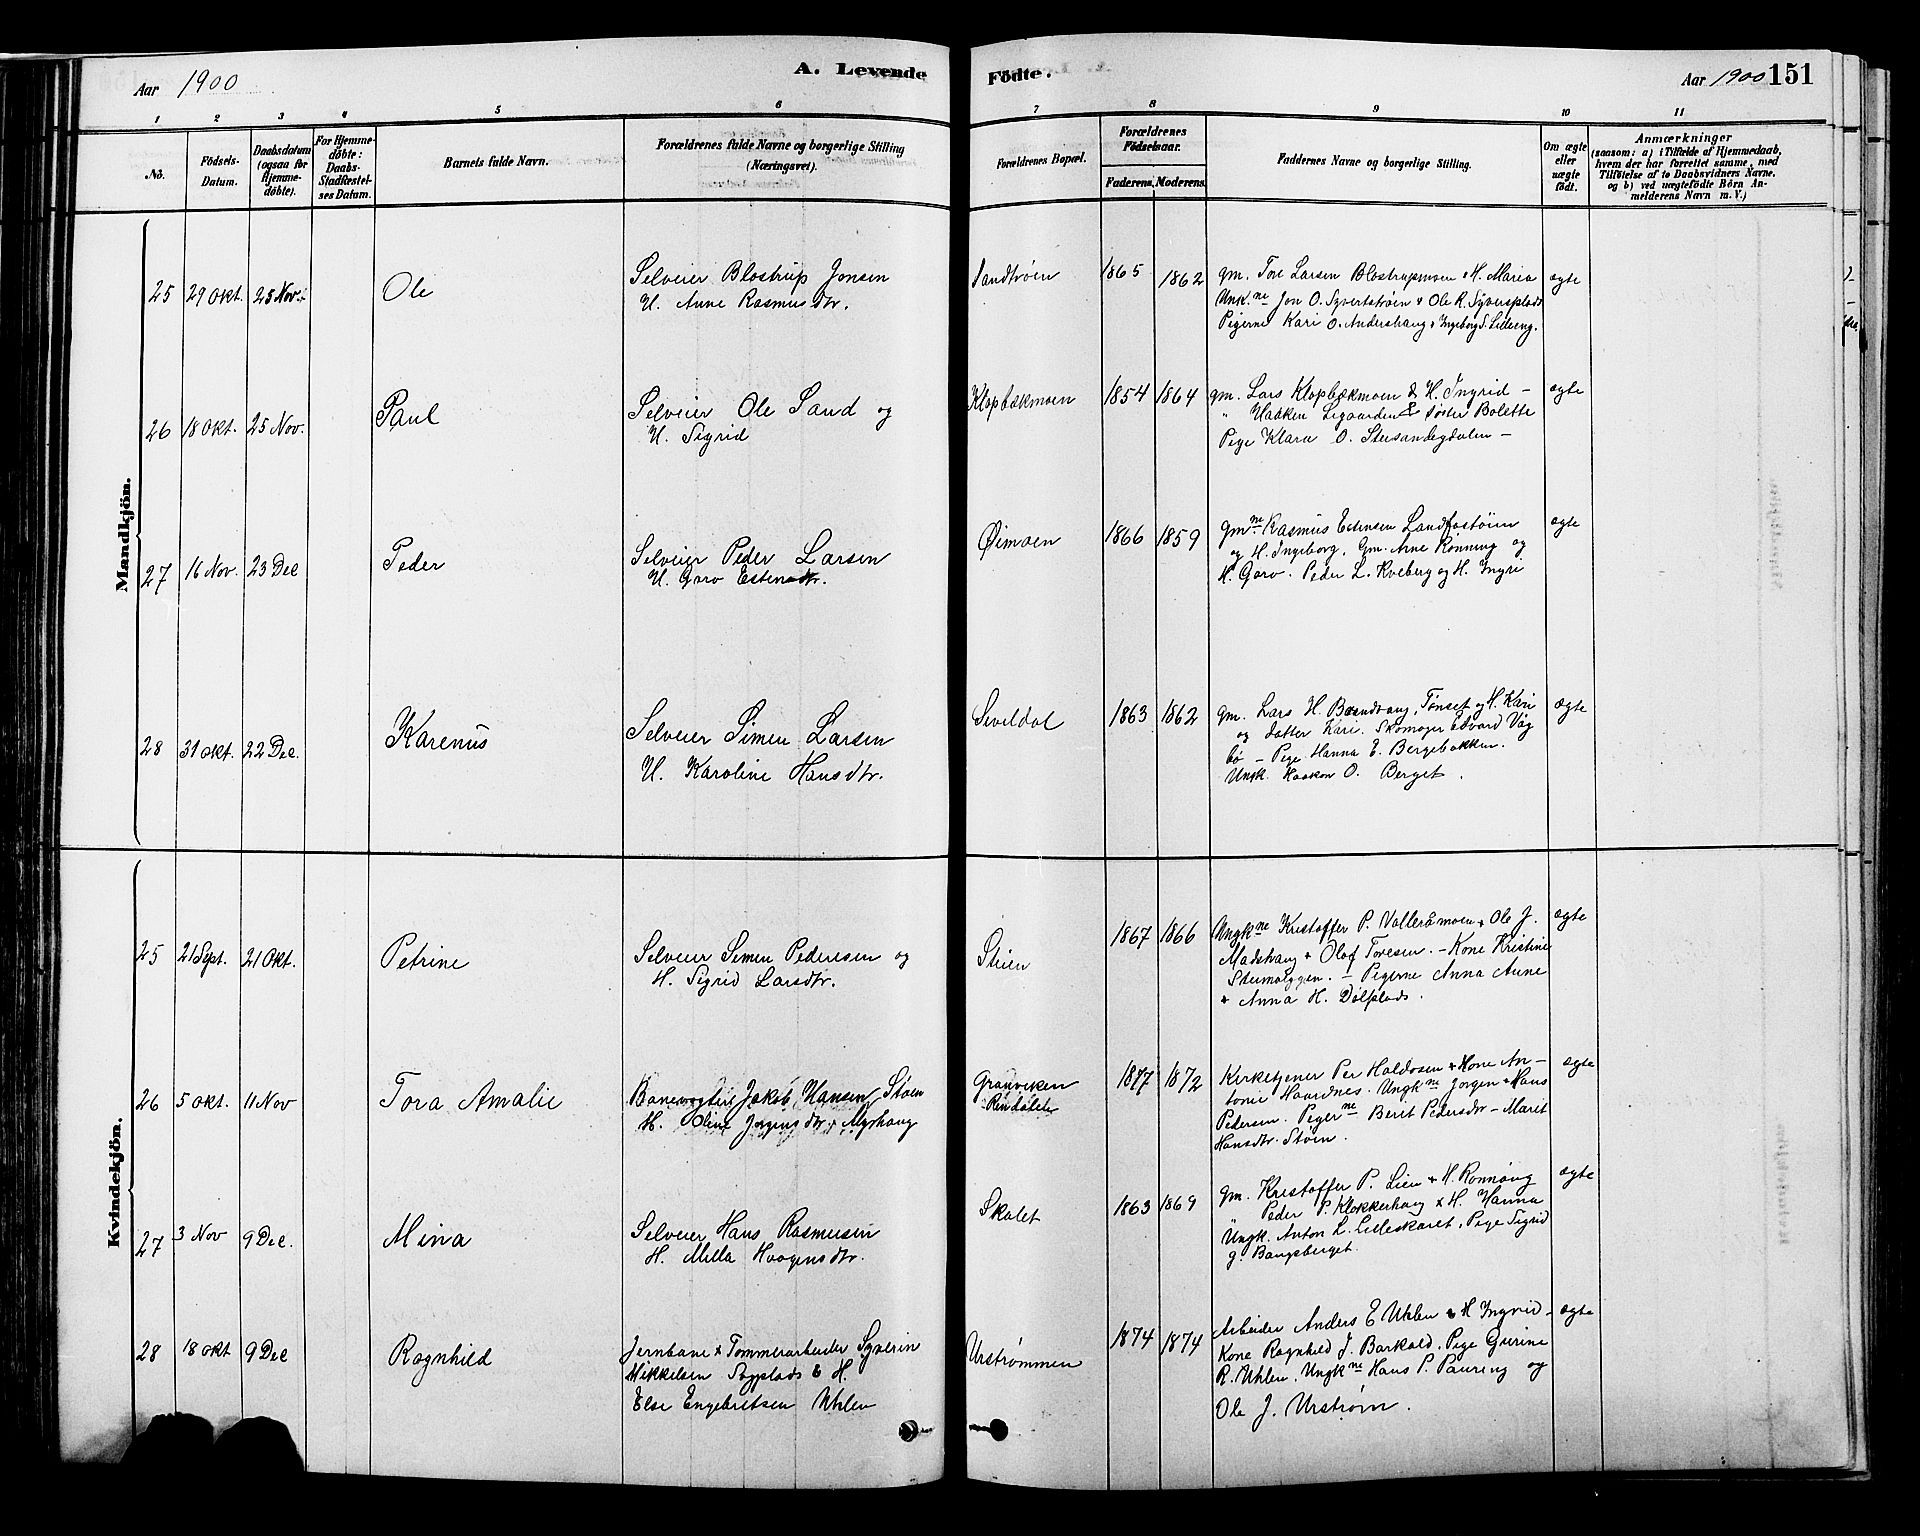 Aar 1900
A. Levende
Födte.
Aar 1900 151
1 2 3 4 5 6 7 8 9 10 11
No.
Födsels-
Datum.
Daabsdatum
(ogsaa for
Hjemme-
döbte).
For Hjemme-
döbte:
Daabs-
Stadfæstel-
ses Datum.
Barnets fulde Navn.
Forældrenes fulde Navne og borgerlige Stilling
(Næringsvei).
Forældrenes Bopæl.
Forældrenes
Födselsaar.
Faderens. Moderens.
Faddernes Navne og borgerlige Stilling.
Om ægte
eller
uægte
födt.
Anmærkninger
(saasom: a) i Tilfælde af Hjemmedaab,
hvem der har forrettet samme, med
Tilföielse af to Daabsvidners Navne,
og b) ved uægtefödte Börn An-
melderens Navn m. V.)
Mandkjön.
25 29 Okt. 25 Nov. Ole
Selveier Blostrup Jonsen
H. Anne Rasmusdtr.
Sandtrøen 1865 1862
gm. Tore Larsen Blostrupmoen & H. Maria
Ungk.ne Jon O. Syvertstrøen & Ole R. Syversplads
Pigerne Kari O. Andershaug & Ingeborg S. Lilleeng.
ægte
26 18 Okt. 25 Nov. Paul
Selveier Ole Sand og
H. Sigrid
Klopbækmoen 1854 1864
gm. Lars Klopbækmoen & H. Ingrid –
" Haaken Ligaarden & søster Bolette
Pige Klara O. Steisandegdalen –
ægte
27 16 Nov. 23 Dec Peder
Selveier Peder Larsen
H. Goro Estensdtr.
Øimoen 1866 1859
gm.ne Rasmus Estensen Sandfostøien
og H. Ingeborg. Gm. Arne Rønning og
H. Goro. Peder L. Kveberg og H. Ingri
ægte
28 31 Okt. 22 Dec. Karenus
Selveier Simen Larsen
H. Karoline Hansdtr.
Siveldal 1863 1862
gm. Lars H. Brandvang, Tønset og H. Kari
og datter Kari. Skomager Edvard Våg
bø – Pige Hanna E. Bergebakken.
Ungk. Haakon O. Berget.
ægte
Kvindekjön.
25 21 Sept. 21 Okt. Petrine
Selveier Simen Pedersen og
H. Sigrid Larsdtr.
Stien 1867 1866
Ungk.ne Kristoffer P. Valleråmoen & Ole J.
Madshaug & Olaf Toresen. – Kone Kristine
Steimolyggen. – Pigerne Anna Aune
& Anna H. Dølplads.
ægte
26 5 Okt. 11 Nov Tora Amalie
Banevogter Jakob Hansen Støen
H. Oline Jørgensdtr. Alyshaug
Granviken
Rendalen
1877 1872
Kirketjener Per Haldosen & Kone An-
tonie Haardnes. Ungk.ne Jørgen & Hans
Pedersen. Piger.ne Beret Pedersdtr – Marit
Hansdtr. Støen.
ægte
27 3 Nov 9 Dec. Mina
Selveier Hans Rasmusen
H. Milla Haagensdtr.
Skalet 1863 1869
gm. Kristoffer P. Lien & H. Ronnaug
" Peder P. Klokkerhaug & H. Hanna
Ungk. Anton L. Lilleskaret, Pige Sigrid
G. Bangsberget.
ægte
28 18 Okt 9 Dec Ragnhild
Jernbane & Tømmerarbeider Syverin
Mikkelsen Sygplads & H.
Else Engebretsen Uhlen
Urstrømmen 1874 1874
Arbeider Anders E Uhlen & H Ingrid –
Kone Ragnhild J. Barkald. Pige Gurine
R. Uhlen. Ungk.ne Hans P. Pauring og
Ole J. Urstrøm.
ægte